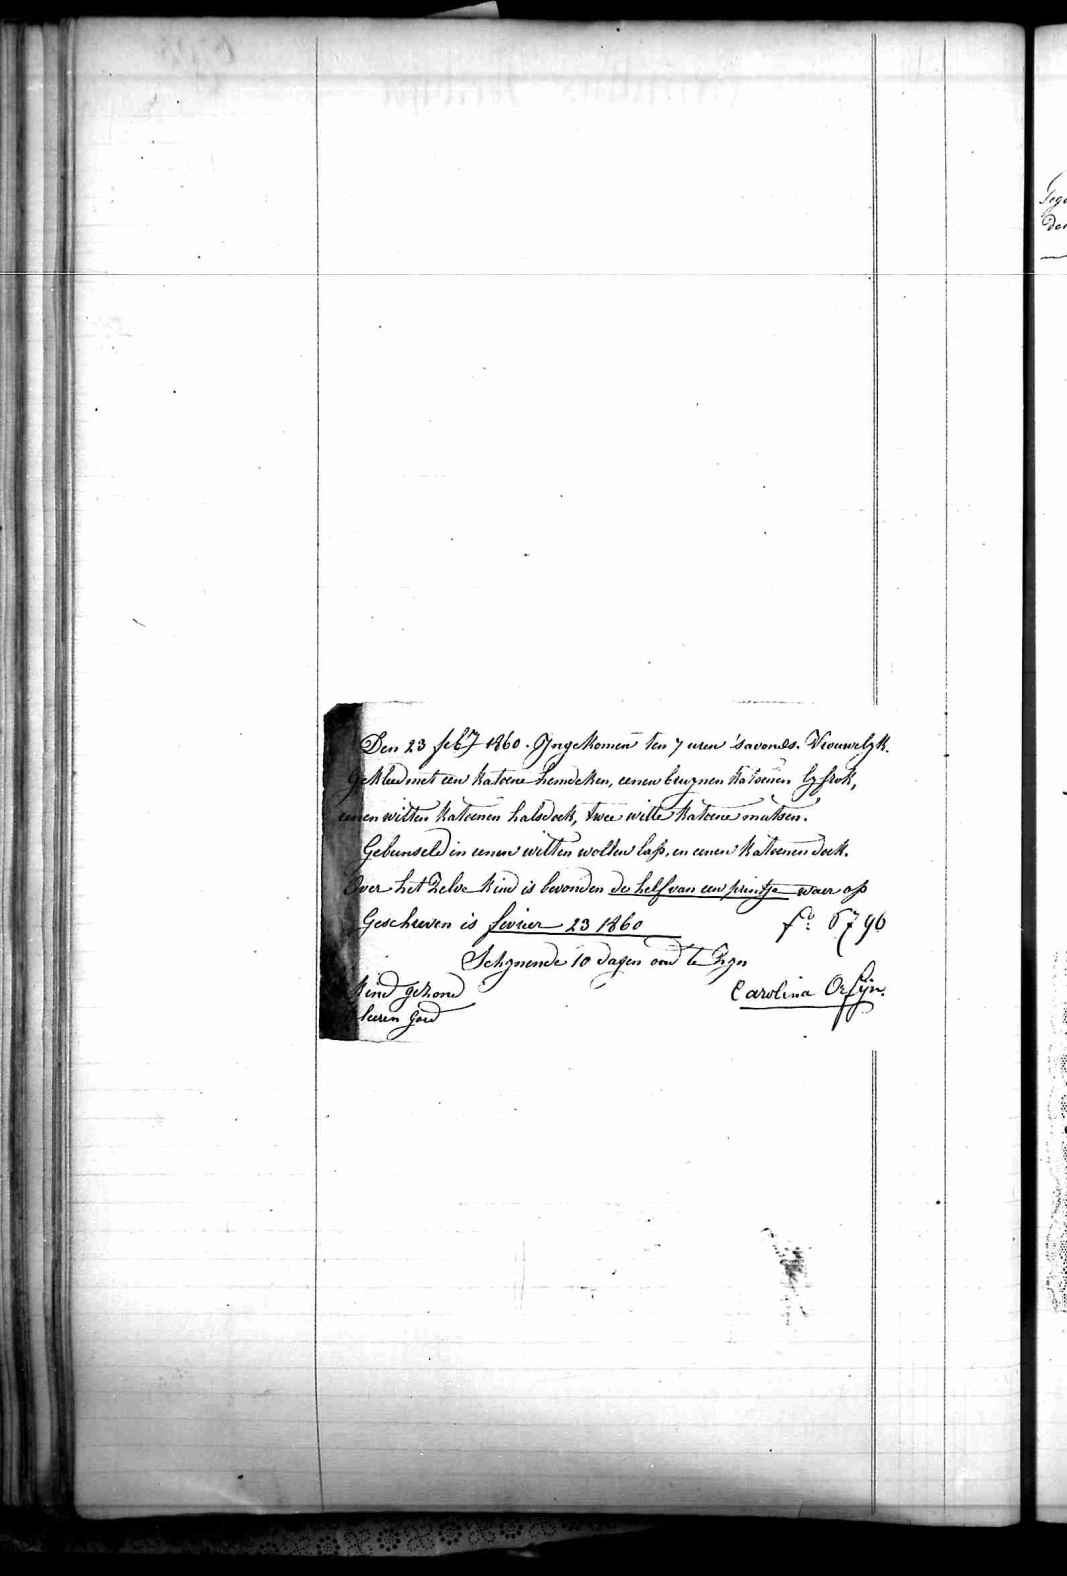 Den 23 feb͏ry 1860. Yngekomen ten 7 uren 'savonds. Vrouwelyk.
Gekleed met een katoene hemdeken, eenen bruynen katoenen lyfrok,
eenen witten katoenen halsdoek, twee witte katoene mutsen.
Gebunseld in eenen witten wollen lap, en eenen katoenen doek.
Over het zelve kind is bevonden de helf van een printje waer op
Geschreven is fevrier 23 1860
f° 6796
Schynende 10 dagen oud te zyn
Kind gezond
kleeren goed
Carolina Orfijn.